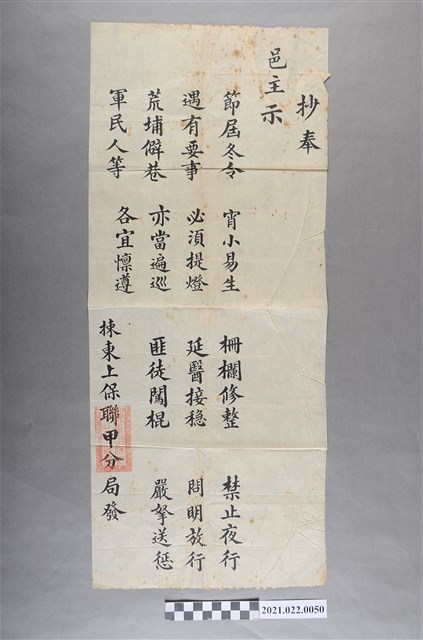 抄奉
邑主示
節屆冬令 宵小易生 柵欄修整 禁止夜行
遇有要事 必須提燈 延醫接穩 問明放行
荒埔僻巷 亦當遍巡 匪徒闖棍 嚴拏送懲
軍民人等 各宜懍遵
揀東上保聯甲分局發
2021.022.0050